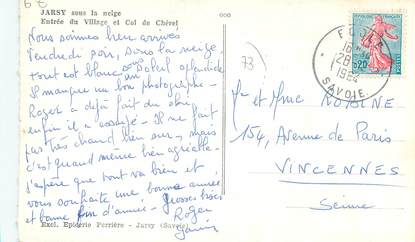 6 E
JARSY sous la neige
Entrée du Village et Col de Chérel
Nous sommes bien arrivés
Vendredi soir, sous la neige
tout est blanc sous soleil splendide
Il manque un bon photographe -
Roger a déjà fait du ski
enfin il a essayé - Il ne fait
pas très chaud bien sûr, mais
c'est quand même bien agréable -
J'espère que tout va bien et
vous souhaite une bonne année
et bonne fin d'année - Grosses bises
Roger
Excl. Epicerie Perrière - Jarsy (Savoie)
73
16 H
28
1964
SAVOIE
0,20
Mr et Mme
154, Avenue de Paris
VINCENNES
Seine